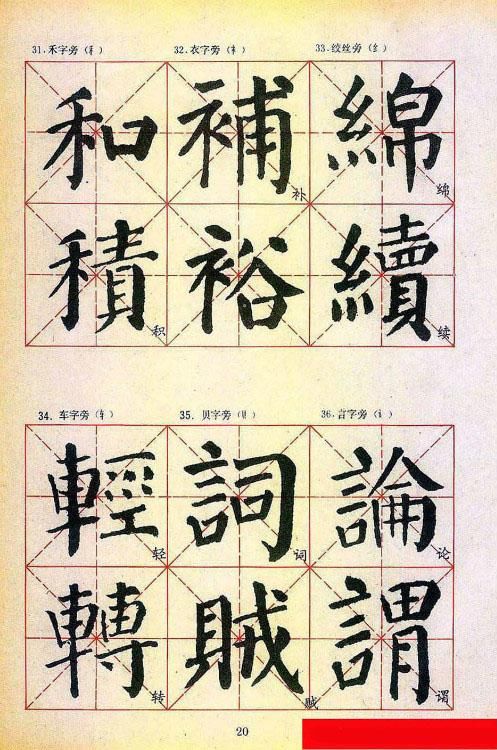 31.禾字旁(禾) 32.衣字旁(衤) 33.绞丝旁(纟)
和 補 綿
补 绵
積 裕 續
积 续
34.车字旁(车) 35.贝字旁(贝) 36.言字旁(讠)
輕 詞 論
轻 词 论
轉 賊 謂
转 贼 谓
20